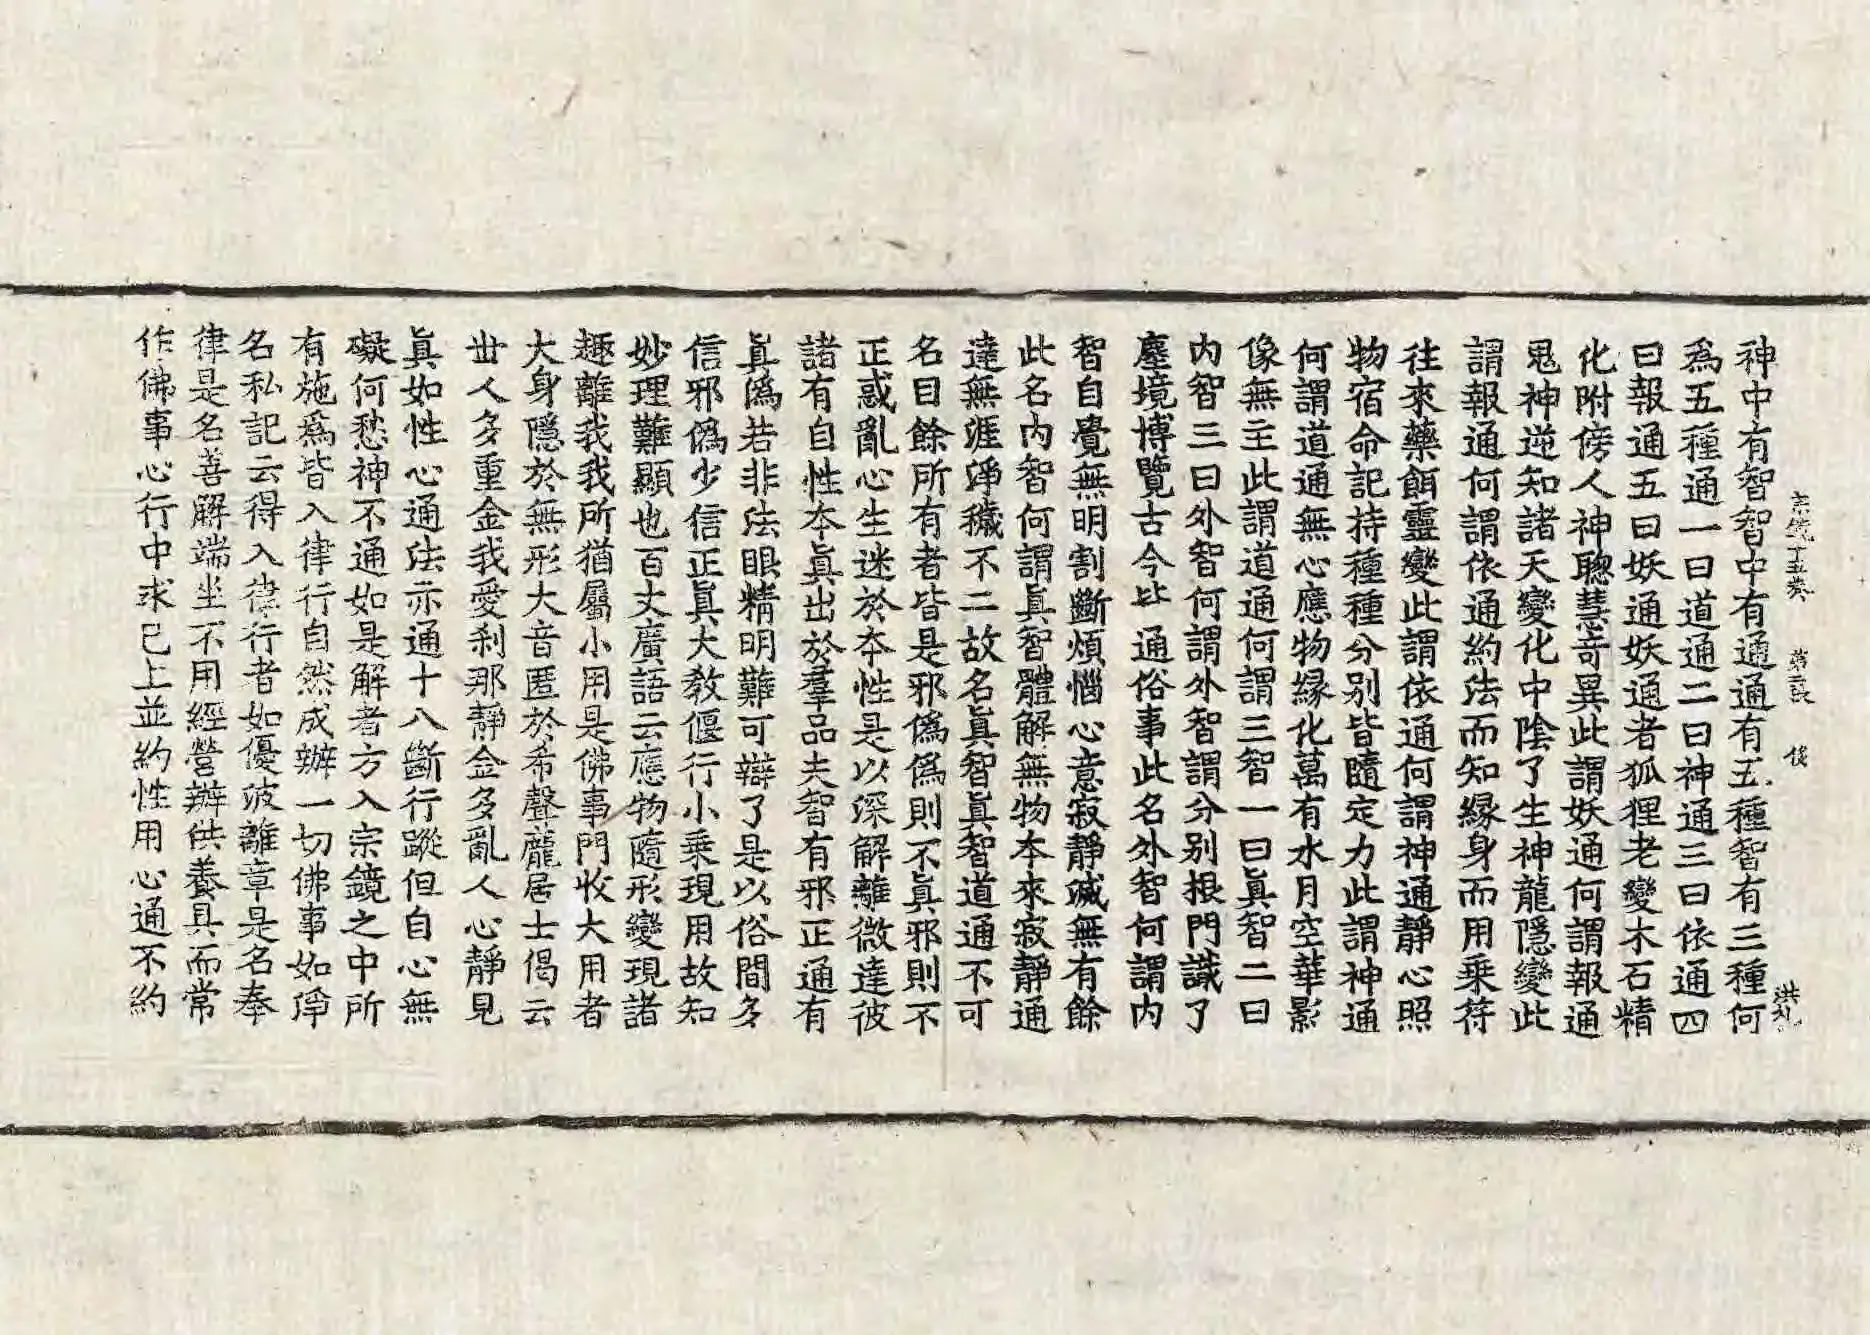 宗鏡十五卷 第三張 俊 洪九
神中有智智中有通通有五種智有三種何
爲五種通一曰道通二曰神通三曰依通四
曰報通五曰妖通妖通者狐狸老變木石精
化附傍人神聦慧竒異此謂妖通何謂報通
鬼神逆知諸天變化中陰了生神龍隱變此
謂報通何謂依通約法而知緣身而用乗符
往來藥餌靈變此謂依通何謂神通靜心照
物宿命記持種種分别皆隨定力此謂神通
何謂道通無心應物緣化萬有水月空華影
像無主此謂道通何謂三智一曰眞智二曰
内智三曰外智何謂外智謂分别根門識了
塵境博覽古今皆通俗事此名外智何謂内
智自覺無明割斷煩惱心意寂靜滅無有餘
此名内智何謂眞智體解無物本來寂靜通
達無涯淨穢不二故名眞智眞智道通不可
名目餘所有者皆是邪僞僞則不眞邪則不
正惑亂心生迷於本性是以深解離微達彼
諸有自性本眞出於羣品夫智有邪正通有
眞僞若非法眼精明難可辯了是以俗間多
信邪僞少信正眞大敎偃行小乗現用故知
妙理難顯也百丈廣語云應物隨形變現諸
趣離我我所猶屬小用是佛事門收大用者
大身隱於無形大音匿於希聲龐居士偈云
丗人多重金我愛刹那靜金多亂人心靜見
眞如性心通法亦通十八斷行蹤但自心無
礙何愁神不通如是解者方入宗鏡之中所
有施爲皆入律行自然成辦一切佛事如淨
名私記云得入律行者如優波離章是名奉
律是名善解端坐不用經營辦供養具而常
作佛事心行中求已上並約性用心通不約